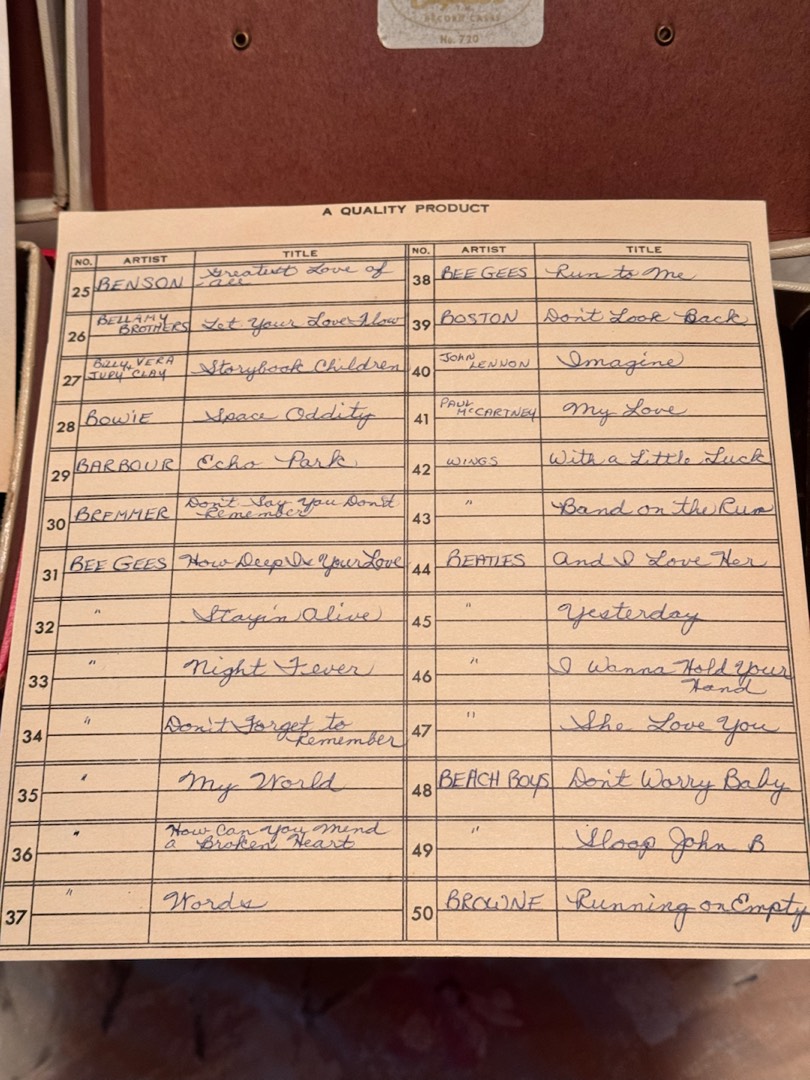 RECORD CASES
No. 720
A QUALITY PRODUCT
NO. ARTIST TITLE
25 BENSON Greatest Love of
all
26 BELLAMY
BROTHERS Let Your Love Flow
27 BILLY VERA
JUDY CLAY Storybook Children
28 BOWIE Space Oddity
29 BARBOUR Echo Park
30 BREMMER Don't Say You Don't
Remember
31 BEE GEES How Deep Is Your Love
32 " Stayin Alive
33 " Night Fever
34 " Don't Forget to
Remember
35 " My World
36 " How Can You Mend
a Broken Heart
37 " Words
NO. ARTIST TITLE
38 BEE GEES Run to Me
39 BOSTON Don't Look Back
40 JOHN
LENNON Imagine
41 PAUL
McCARTNEY My Love
42 WINGS With a Little Luck
43 " Band on the Run
44 BEATLES And I Love Her
45 " Yesterday
46 " I Wanna Hold Your
Hand
47 " She Love You
48 BEACH BOYS Don't Worry Baby
49 " Sloop John B
50 BROWNE Running on Empty